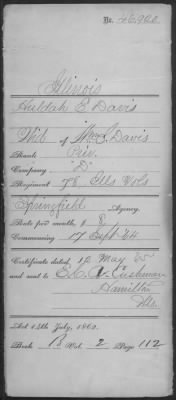 No. 46,900
Illinois
Huldah E. Davis
Wid of Wm S. Davis
Rank Priv.
Company "D"
Regiment 78 Ills Vols
Springfield Agency.
Rate per month, $8
Commencing 17 Sept 64
Certificate dated, 12 May 65
and sent to E. C. V. Cushman
Hamilton
Ills.
Act 14th July, 1862.
Book B Vol. 2 Page 112